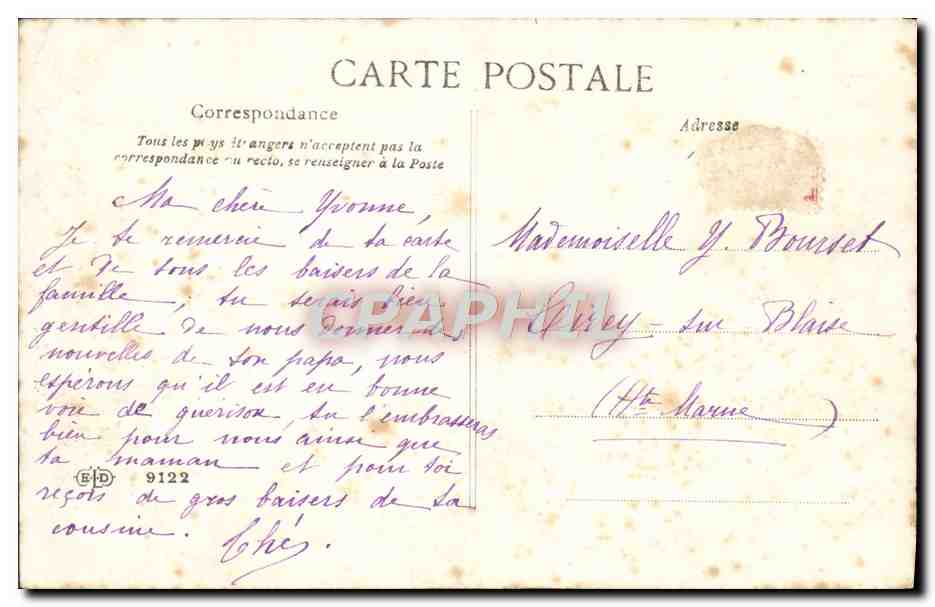 CARTE POSTALE
Correspondance
Tous les pays étrangers n'acceptent pas la
correspondance au recto, se renseigner à la Poste
Ma chère Yvonne,
Je te remercie de ta carte
et de tous les baisers de la
famille, tu serais bien
gentille de nous donner des
nouvelles de ton papa, nous
espérons qu'il est en bonne
voie de guérison, tu l'embrasseras
bien pour nous ainsi que
ta maman et pour toi
reçois de gros baisers de ta
cousine.
ELD 9122
Adresse
Mademoiselle Y. Bourset
Cirey-sur Blaise
(Hte Marne)
CPAPHIL